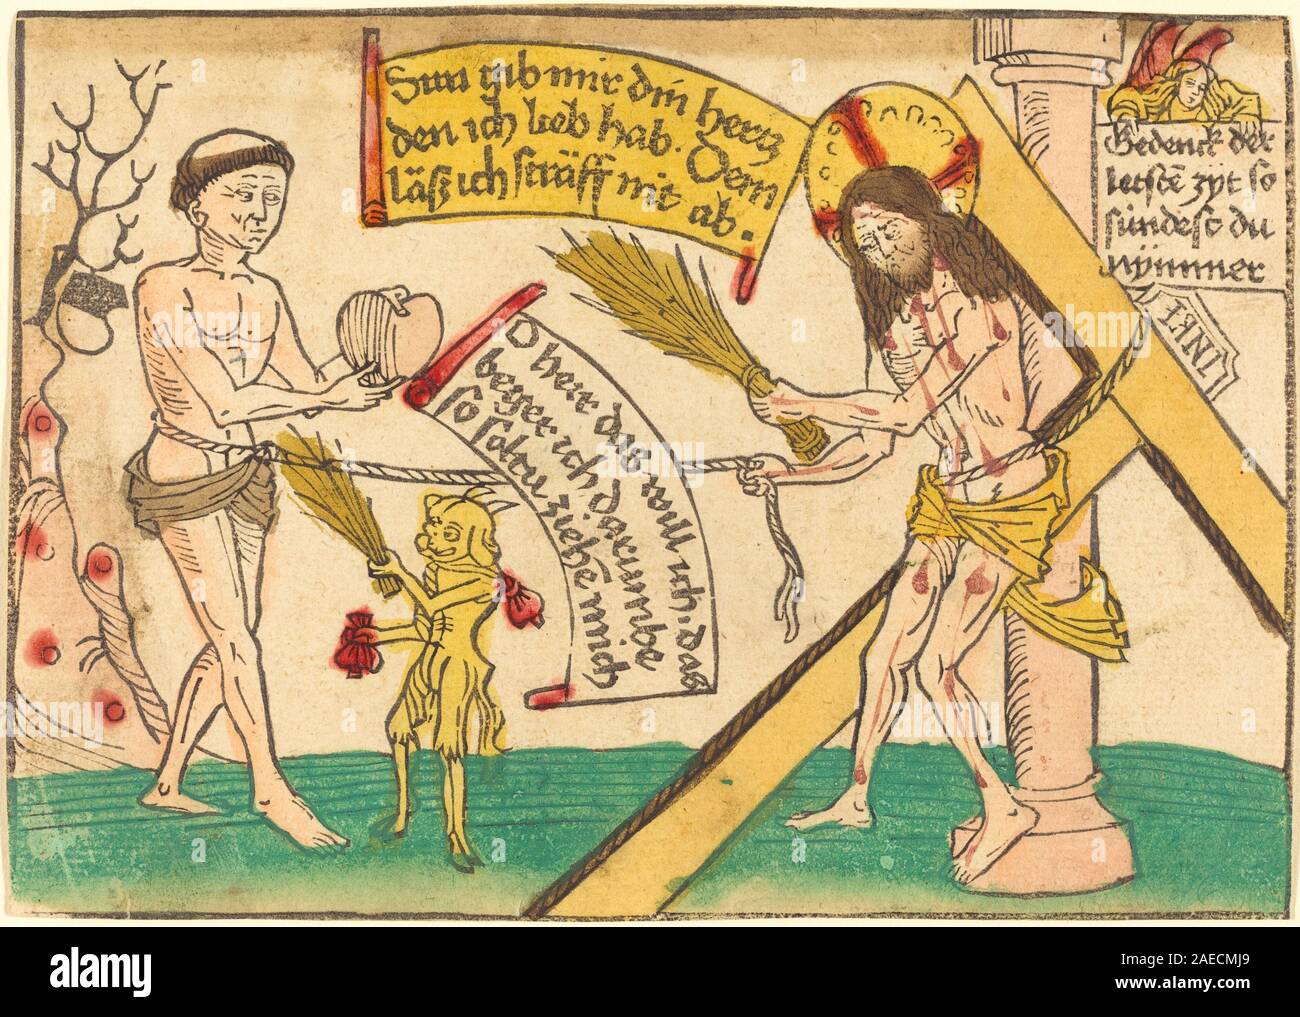 Sun gib mir din hertz
den ich lieb hab. Dem
läß ich sträff nit ab.
O herr das will ich, das
beger ich, darumbe
so soltu ziehē mich
Gedenck der
letstē zyt so
sündest du
nym̄mer
INRI
a alamy stock photo
alamy
Image ID: 2AECMJ9
www.alamy.com